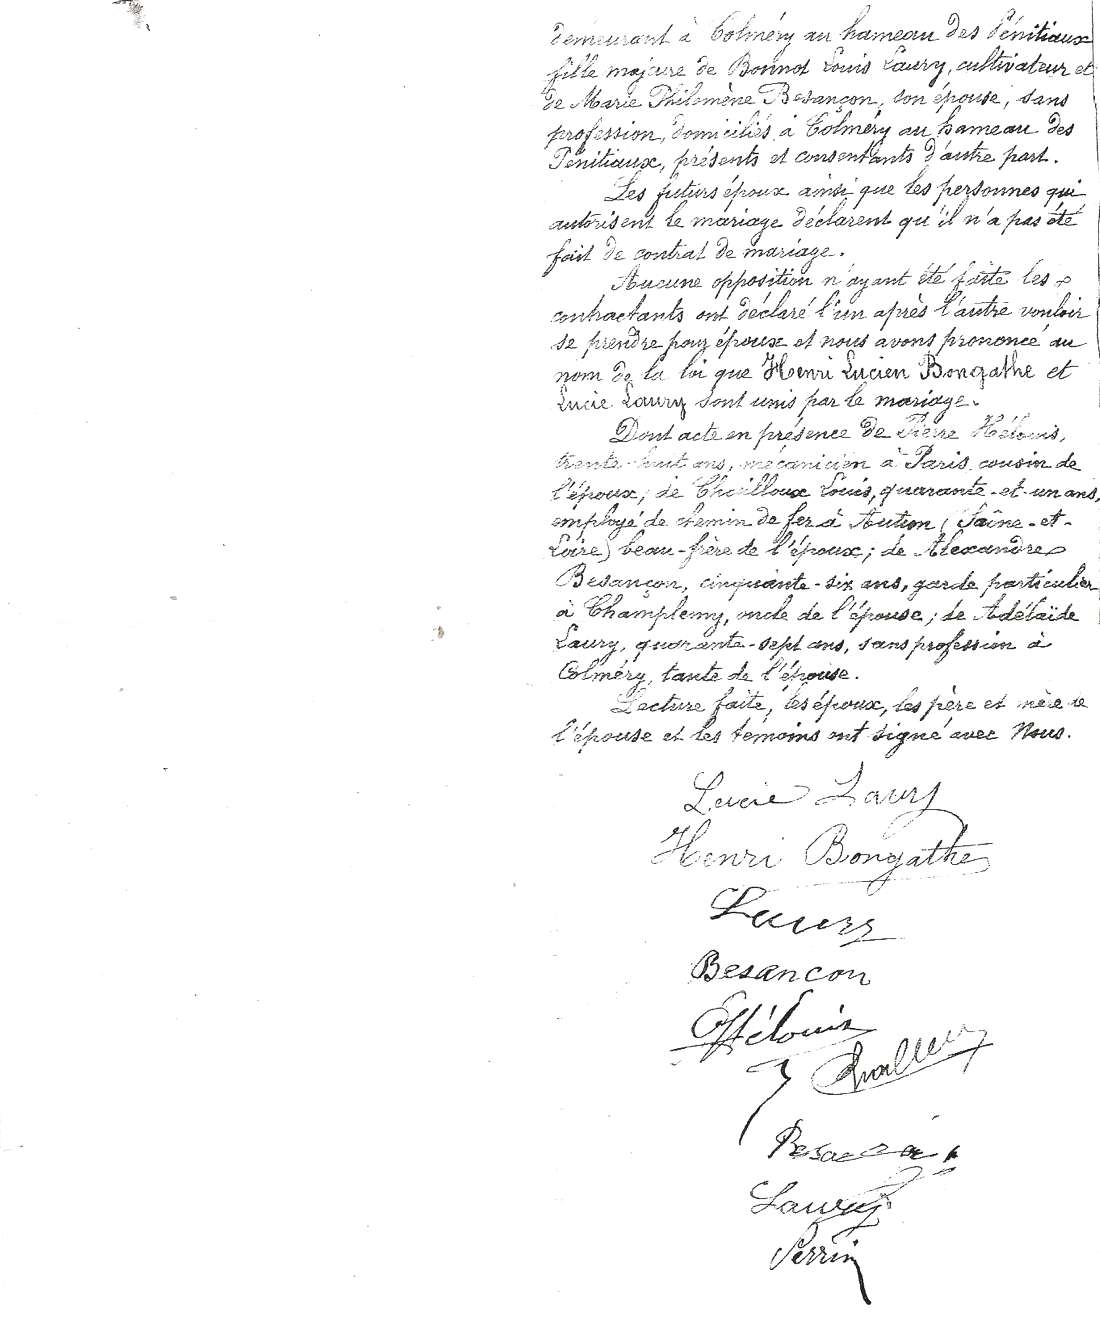 demeurant à Colméry au hameau des Pénitiaux
fille majeure de Bonnot Louis Laury, cultivateur et
de Marie Philomène Besançon, son épouse, sans
profession, domiciliés à Colméry au hameau des
Pénitiaux, présents et consentants d'autre part.
Les futurs époux ainsi que les personnes qui
autorisent le mariage déclarent qu'il n'a pas été
fait de contrat de mariage.
Aucune opposition n'ayant été faite les
contractants ont déclaré l'un après l'autre vouloir
se prendre pour époux et nous avons prononcé au
nom de la loi que Henri Lucien Bongathe et
Lucie Laury sont unis par le mariage.
Dont acte en présence de Pierre Hélouis,
trente-huit ans, mécanicien à Paris, cousin de
l'époux; de Chailloux Louis, quarante-et-un ans,
employé de chemin de fer à Autun (Saône-et-
Loire) beau-frère de l'époux; de Alexandre
Besançon, cinquante-six ans, garde particulier
à Champlemy, oncle de l'épouse; de Adélaïde
Laury, quarante-sept ans, sans profession à
Colméry, tante de l'épouse.
Lecture faite, les époux, les père et mère de
l'épouse et les témoins ont signé avec Nous.
Lucie Laury
Henri Bongathe
Laury
Besancon
Hélouis
Laury
Perrin